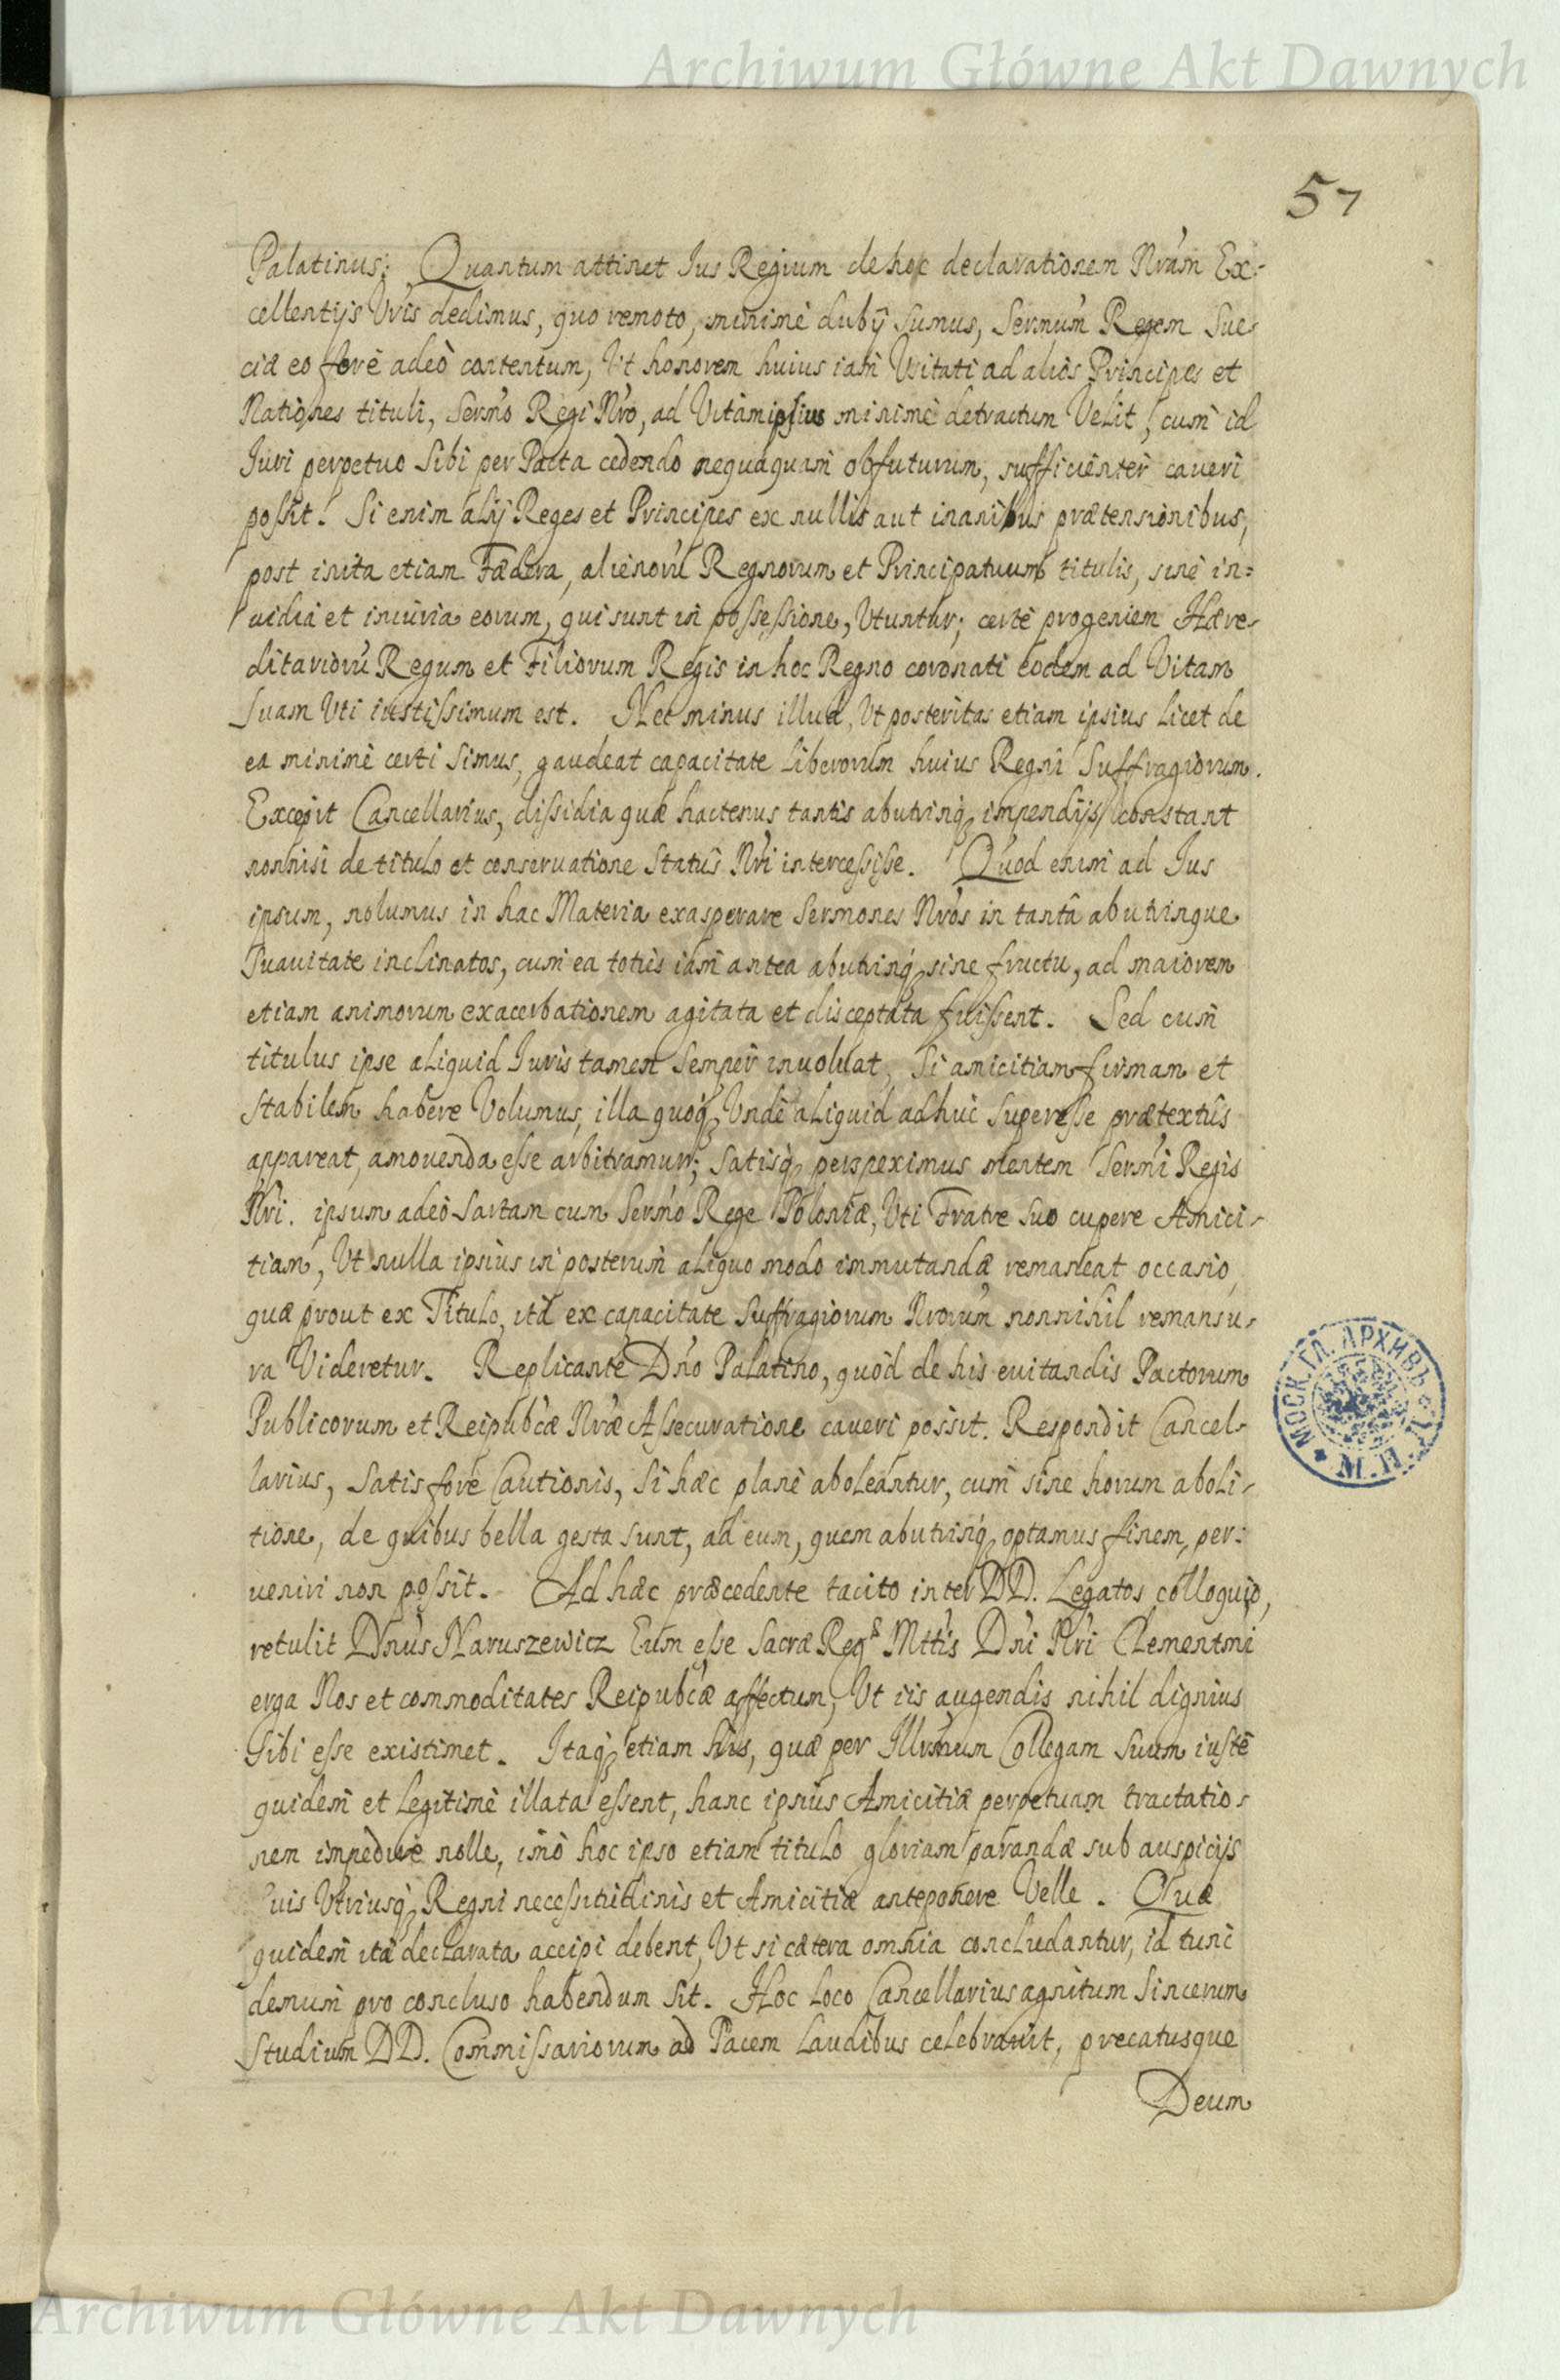 Archiwum Główne Akt Dawnych
57
Palatinus: Quantum attinet Jus Regium de hoc declarationem Nr̃am Ex-
cellentijs Vr̃is dedimus, quo remoto, minimè dubij sumus, Serm̃um Regem Sue-
ciæ eo forè adeò contentum, Ut honorem huius iam Usitati ad alios Principes et
Nationes tituli, Serm̃o Regi Nr̃o, ad Vitam ipsius minimè detractum Velit, cum id
Juri perpetuo Sibi per Pacta cedendo nequaquam obfuturum, sufficienter caveri
possit. Si enim alij Reges et Principes ex nullis aut inanibus prætensionibus,
post inita etiam Fœdera, alienorũ Regnorum et Principatuum titulis, sine in-
uidia et iniuria eorum, qui sunt in possessione, Utuntur; certè progeniem Hære-
ditariorũ Regum et Filiorum Regis in hoc Regno coronati eodem ad Vitam
Suam Uti iustissimum est. Nec minus illud, Ut posteritas etiam ipsius licet de
ea minimè certi Simus, gaudeat capacitate liberorum huius Regni Suffragiorum.
Excepit Cancellarius, dissidia quæ hactenus tantis abutrinq; impendijs constant
nonnisi de titulo et conseruatione Statûs Nr̃i intercessisse. Quod enim ad Jus
ipsum, nolumus in hac Materia exasperare Sermones Nr̃os in tantâ abutrinque
Suauitate inclinatos, cum ea toties iam antea abutrinq; sine fructu, ad maiorem
etiam animorum exacerbationem agitata et disceptata fuissent. Sed cum
titulus ipse aliquid Juris tamen Semper inuoluat, Si amicitiam firmam et
Stabilem habere Volumus, illa quoq; Undè aliquid adhuc Superesse prætextûs
appareat, amouenda esse arbitramur; Satisq; perspeximus mentem Serm̃i Regis
Nr̃i. ipsum adeò Sartam cum Serm̃o Rege Poloniæ, Uti Fratre Suo cupere Amici-
tiam, Ut nulla ipsius in posterum aliquo modo immutandæ remaneat occasio,
quæ prout ex Titulo, ità ex capacitate Suffragiorum Nr̃orum nonnihil remansu-
ra Videretur. Replicante Dn̄o Palatino, quòd de his euitandis Pactorum
Publicorum et Reipubc̃æ Nr̃æ Assecuratione caueri possit. Respondit Cancel-
larius, Satis fore Cautionis, Si hæc planè aboleantur, cum sine horum aboli-
tione, de quibus bella gesta sunt, ad eum, quem abutrinq; optamus finem, per-
ueniri non possit. Ad hæc præcedente tacito inter DD. Legatos colloquio,
retulit Dn̄us Naruszewicz Eum esse Sacræ Reg͠ Mttis Dn̄i Nr̃i Clementmi
erga Nos et commoditates Reipubc̃æ affectum, Ut iis augendis nihil dignius
Sibi esse existimet. Itaq; etiam his, quæ per Illrm̃um Collegam Suum iustè
quidem et Legitimè illata essent, hanc ipsius Amicitiæ perpetuam tractatio-
nem impedire nolle, imò hoc ipso etiam titulo gloriam parandæ sub auspicijs
Suis Utriusq; Regni necessitudinis et Amicitiæ anteponere Velle. Quæ
quidem ità declarata accipi debent, Ut si cætera omnia concludantur, id tunc
demum pro concluso habendum Sit. Hoc loco Cancellarius agnitum Sincerum
Studium DD. Commissariorum ad Pacem Laudibus celebrauit, precatusque
Deum
МОСК. ГЛ. АРХИВЪ
Archiwum Główne Akt Dawnych